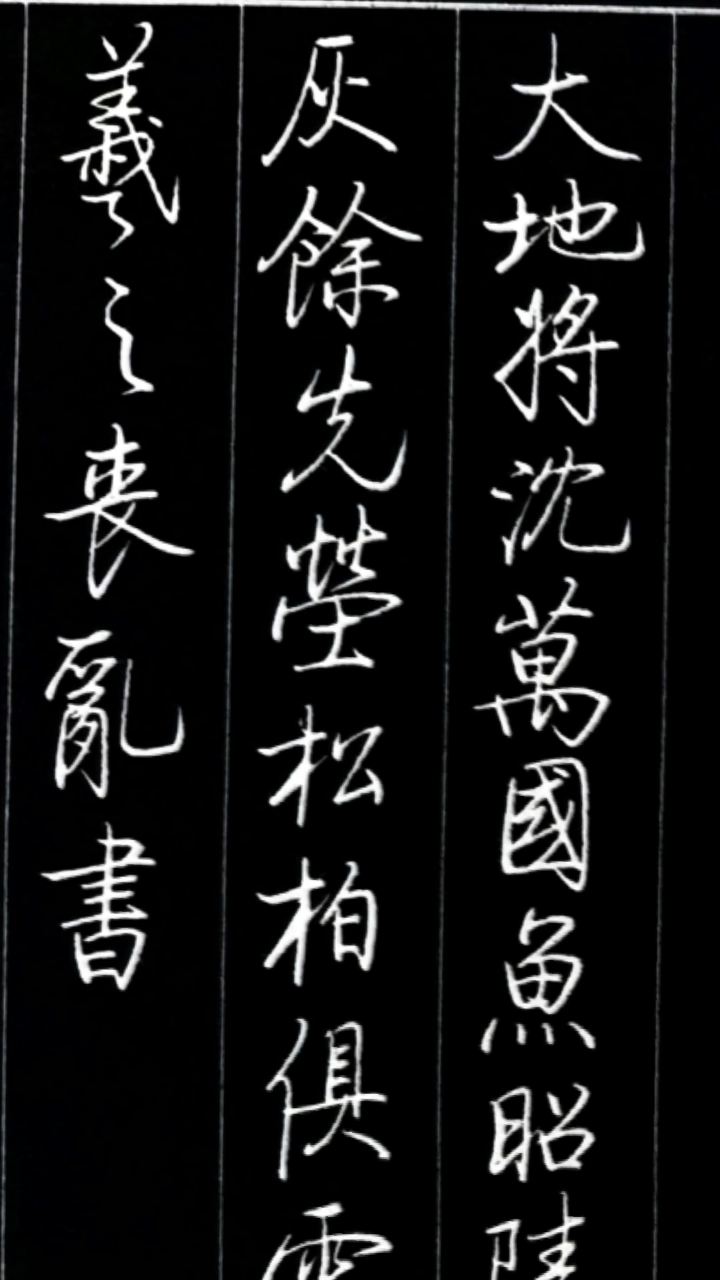 大地將沈萬國魚昭陸
灰餘先塋松柏俱
羲之喪亂書